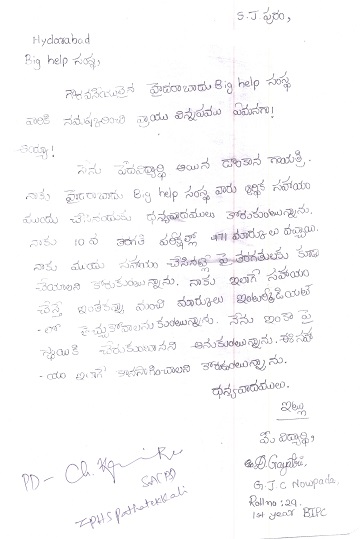 S.J పురం,
Hyderabad
Big help సంస్థ,
గౌరవనీయులైన హైదరాబాదు Big help సంస్థ
వారికి నమస్కరించి వ్రాయు విన్నపము ఏమనగా!
అయ్యా!
నేను పేదవిద్యార్థి అయిన గాయత్రి.
నాకు హైదరాబాదు Big help సంస్థ వారు ఆర్థిక సహాయం
ముందు చేసినందుకు ధన్యవాదములు కోరుకుంటున్నాను.
నాకు 10 వ తరగతి పరీక్షల్లో 471 మార్కులు వచ్చాయి.
నాకు ముందు సహాయం చేసినట్లే పై తరగతులకు కూడా
చేయాలని కోరుకుంటున్నాను. నాకు ఇలాగే సహాయం
చేస్తే ఇంతకన్నా మంచి మార్కులు ఇంటర్మీడియట్
-లో తెచ్చుకోవాలనుకుంటున్నాను. నేను ఇంకా పై
స్థాయికి చేరుకుంటానని అనుకుంటున్నాను. ఈ సహా
-యం ఇలాగే కొనసాగించాలని కోరుకుంటున్నాను.
ధన్యవాదములు.
ఇట్లు
మీ విద్యార్థి,
D. Gayatri,
G J C Nowpada.
Roll no: 29.
1st year BIPC
PD - Ch.
ZPHS